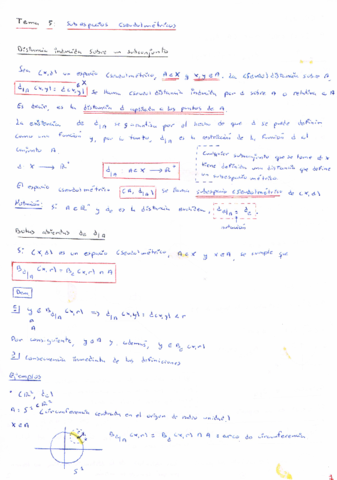 Tema 5: Subespacios (pseudo)métricos
Distancia inducida sobre un subconjunto
Sea (X,d) un espacio (pseudo)métrico, A⊂X y x,y∈A. La (pseudo)distancia sobre A,
d|A (x,y) = d(x,y) se llama (pseudo)distancia inducida por d sobre A o relativa a A
Es decir, es la distancia d aplicada a los puntos de A.
La existencia de d|A se justifica por el hecho de que d se puede definir
como una función y, por lo tanto, d|A es la restricción de la función d al
conjunto A
Cualquier subconjunto que se tome de X
tiene definida una distancia que define
un subespacio métrico
El espacio (pseudo)métrico (A, d|A) se llama subespacio (pseudo)métrico de (X,d)
Notación: Si A⊂ℝⁿ y de es la distancia euclídea,
Bolas abiertas de d|A
Si (X,d) es un espacio (pseudo)métrico, A⊂X y x∈A, se cumple que
B d|A (x,r) = B d (x,r) ∩ A
Dem
⊆| y ∈ B d|A (x,r) ⇒ d|A (x,y) = d(x,y) < r
Por consiguiente, y∈A y, además, y ∈ B d (x,r)
⊇| Consecuencia inmediata de las definiciones
Ejemplos
A = S¹ (circunferencia centrada en el origen de radio unidad)
x∈A
B d|A (x,r) = B d (x,r) ∩ A = arco de circunferencia
S¹
1